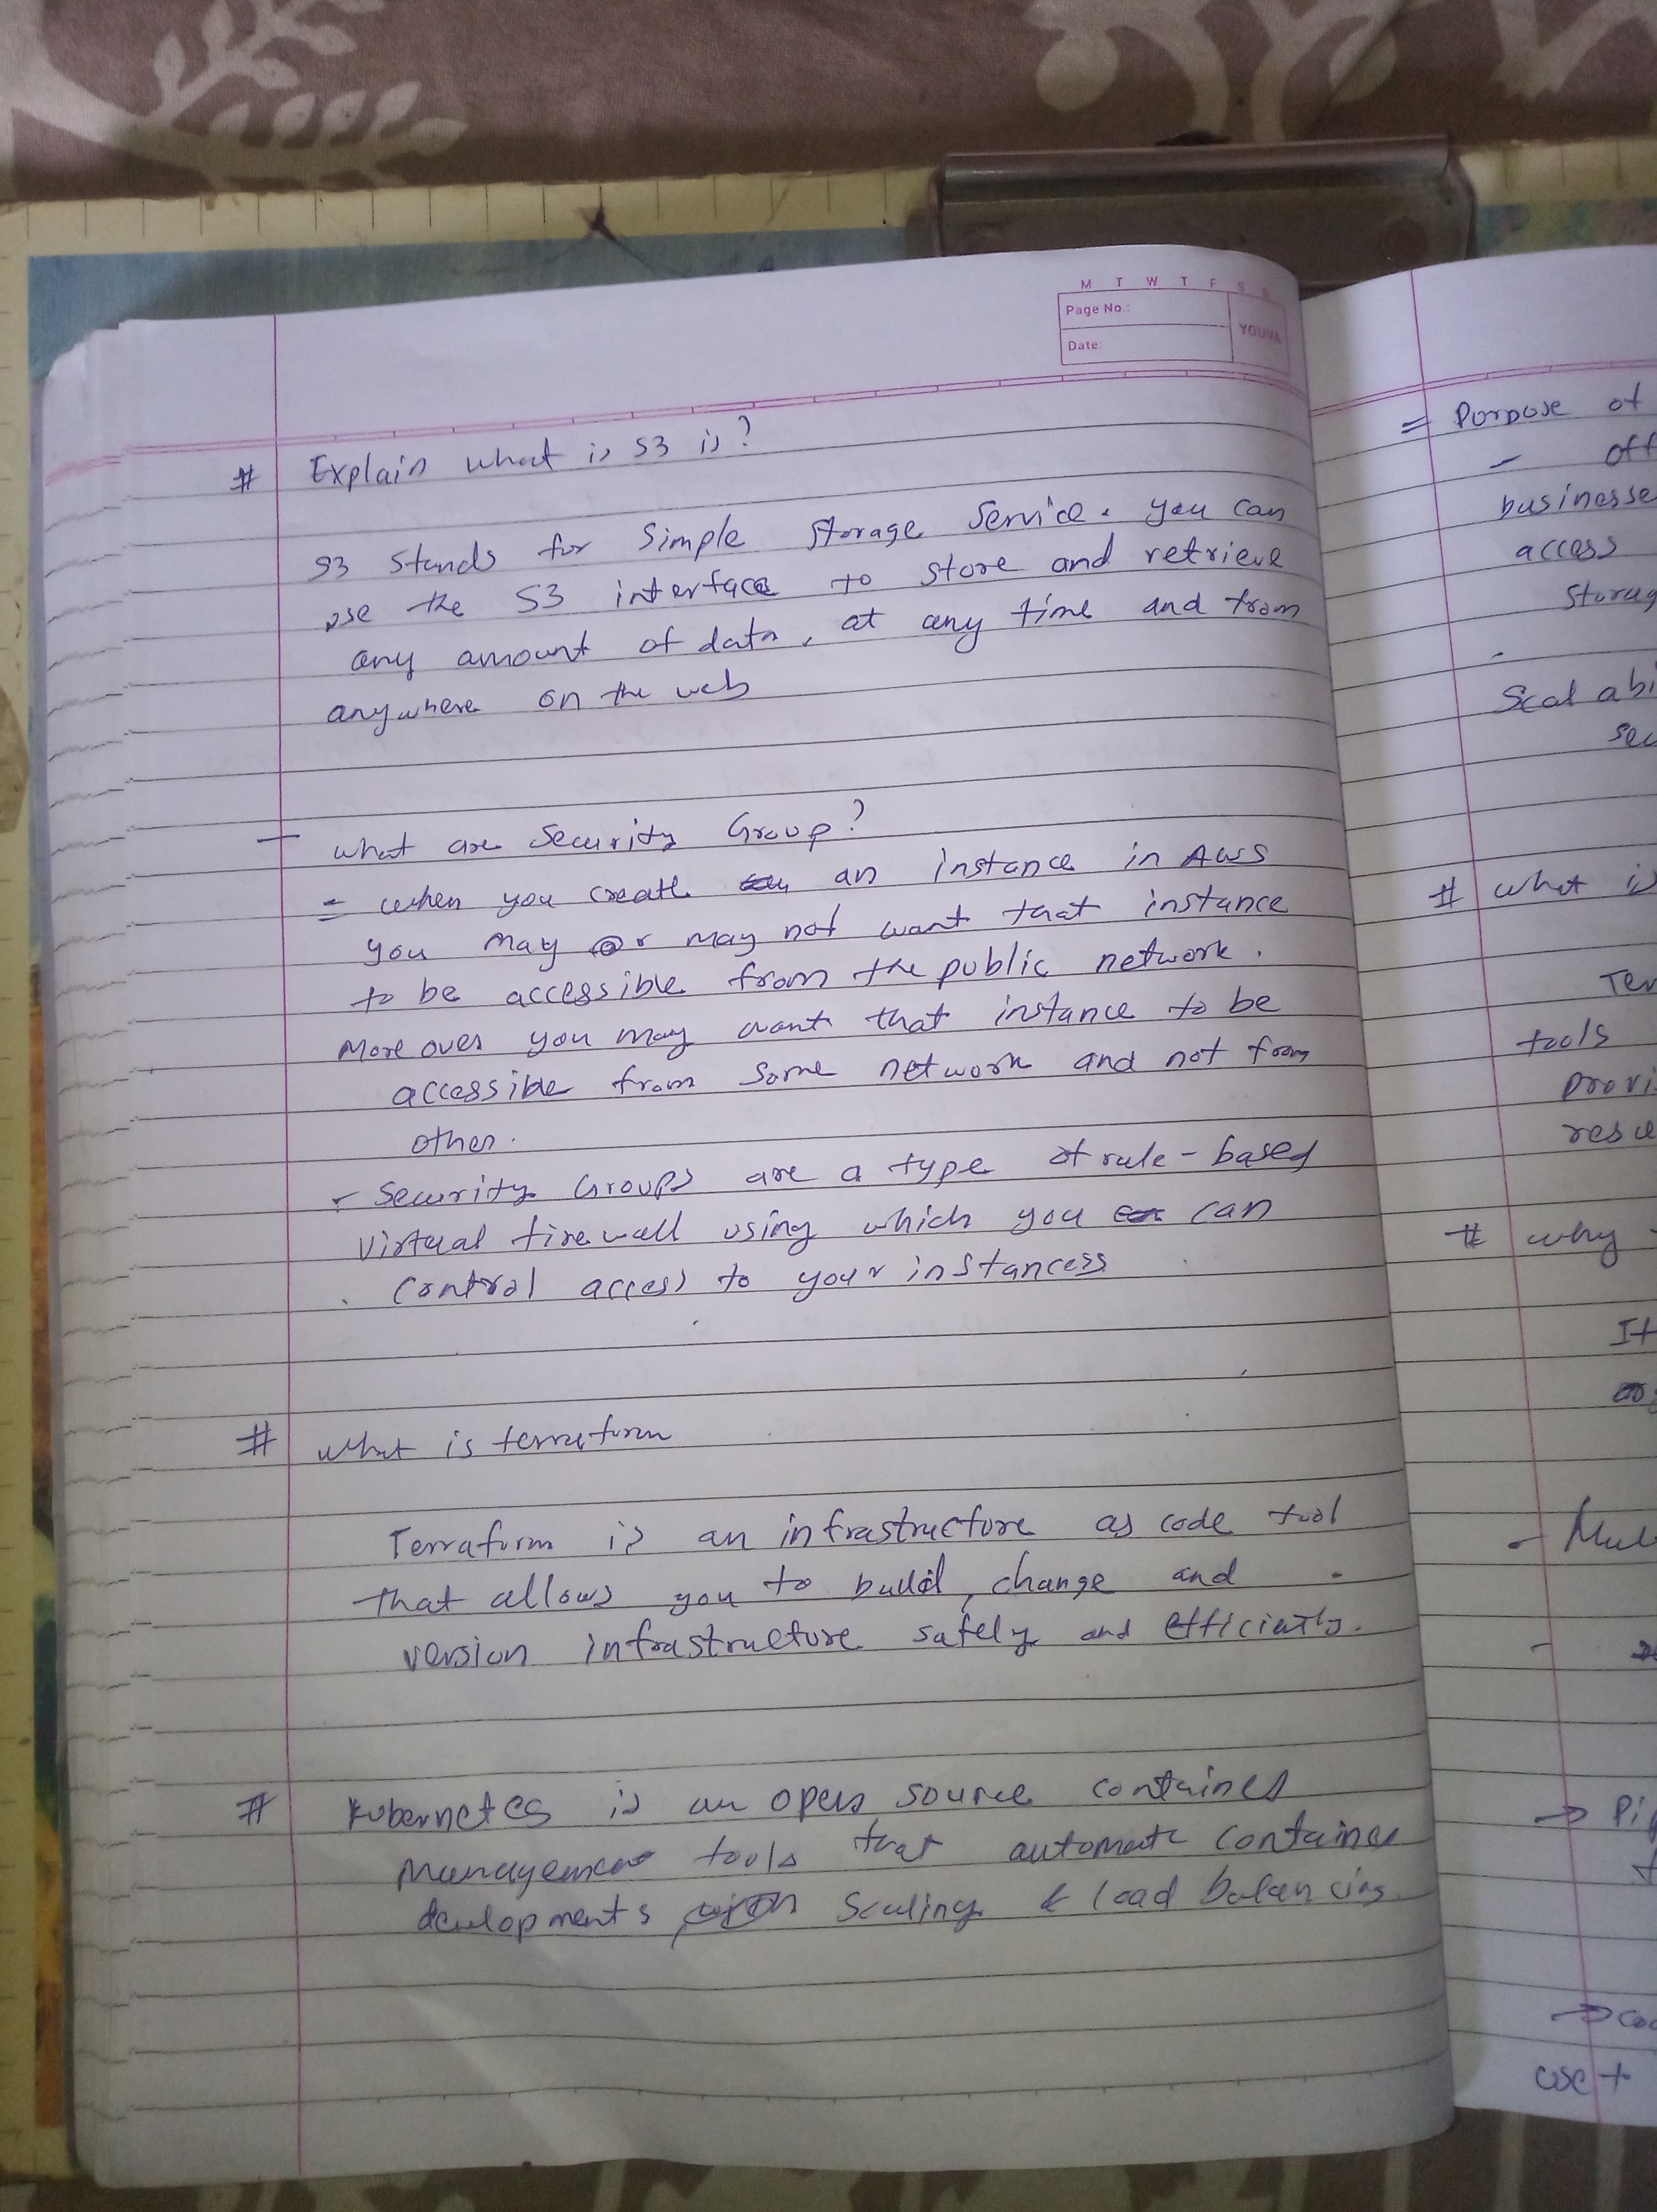 M T W T F S S
Page No.:
YOUVA
Date:
# Explain what is S3 is?
S3 stands for Simple Storage Service. you can
use the S3 interface to store and retrieve
any amount of data, at any time and from
anywhere on the web
- what are Security Group?
= when you create an instance in AWS
you may or may not want that instance
to be accessible from the public network.
More over you may want that instance to be
accessible from some network and not from
other.
- Security Groups are a type of rule-based
Virtual firewall using which you can
control access to your instancess
# what is terraform
Terraform is an infrastructure as code tool
that allows you to build, change and
version infrastructure safely and efficiently.
# Kubernetes is an open source container
management tools that automate container
developments, scaling & load balancing.
= Purpose of
- off
businesse
access
Storag
Scalabi
sec
# what is
Ter
tools
provi
resu
# why
It
- Mul
→ Pip
→ coo
cost